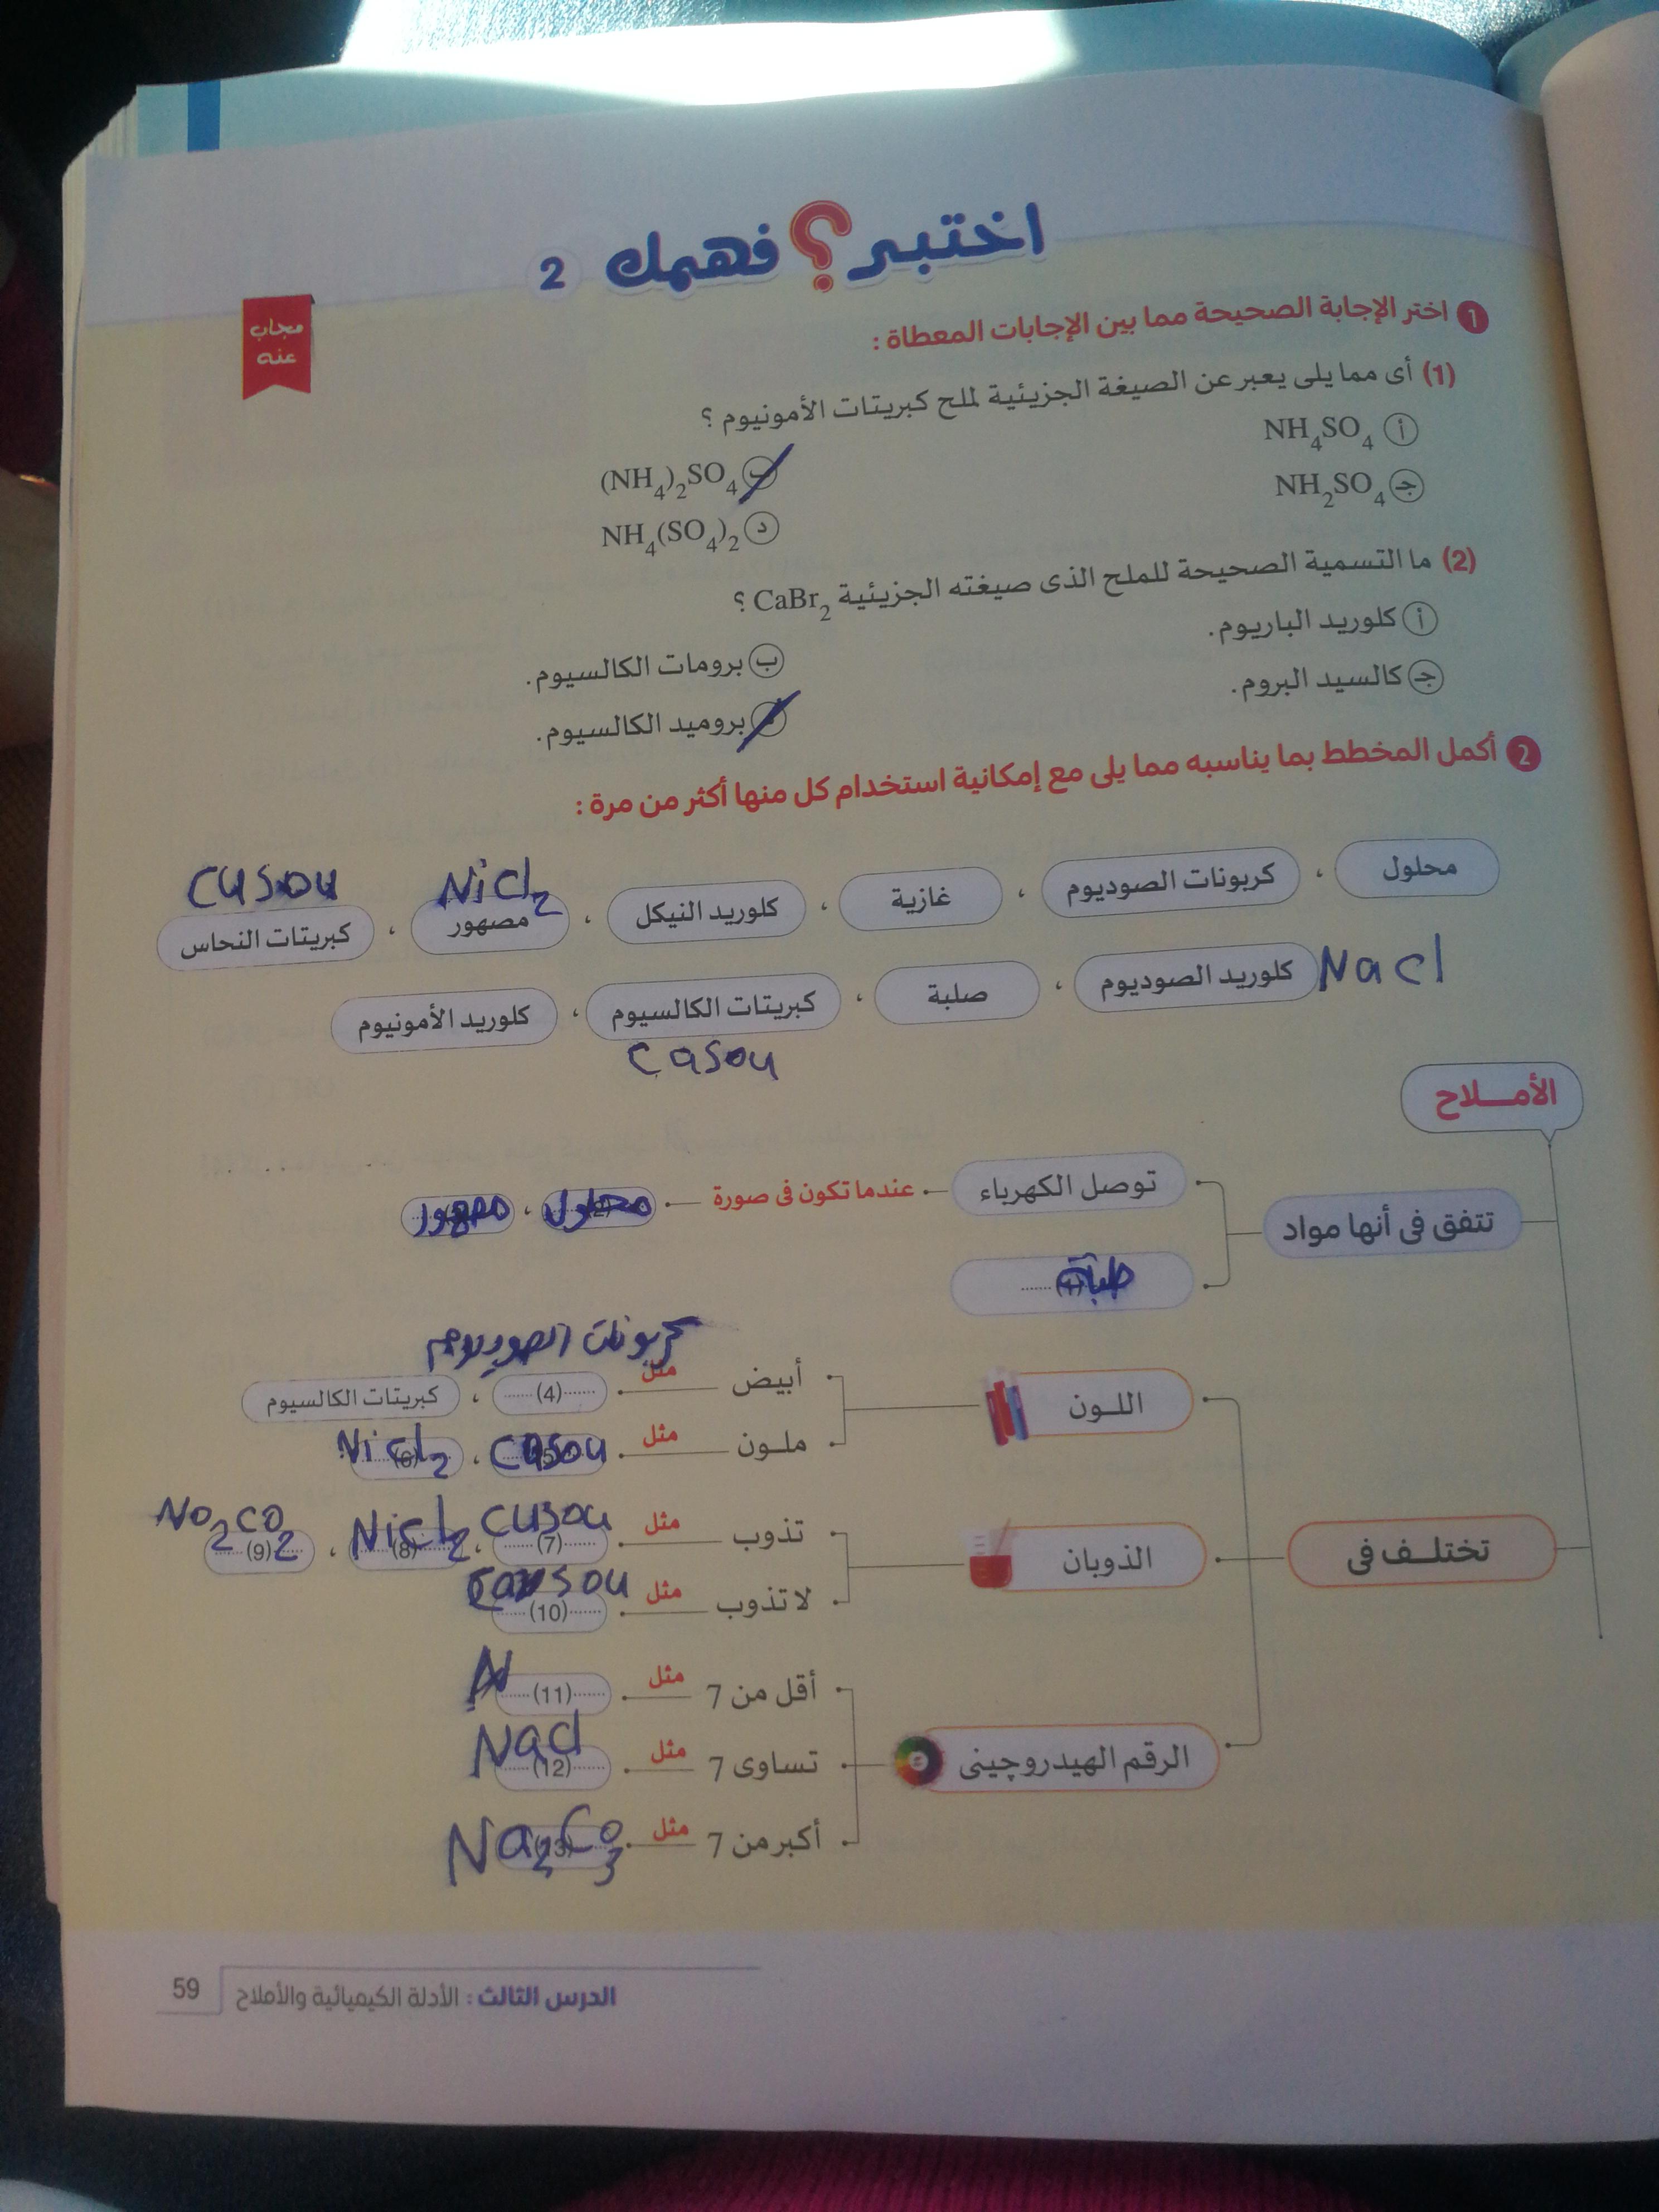 اختبر ؟ فهمك 2
مجاب عنه
1 اختر الإجابة الصحيحة مما بين الإجابات المعطاة :
(1) أى مما يلى يعبر عن الصيغة الجزيئية لملح كبريتات الأمونيوم ؟
أ NH₄SO₄
ب (NH₄)₂SO₄
جـ NH₂SO₄
د NH₄(SO₄)₂
(2) ما التسمية الصحيحة للملح الذى صيغته الجزيئية CaBr₂ ؟
أ كلوريد الباريوم.
ب برومات الكالسيوم.
جـ كالسيد البروم.
بروميد الكالسيوم.
2 أكمل المخطط بما يناسبه مما يلى مع إمكانية استخدام كل منها أكثر من مرة :
NiCl₂ CuSou
محلول ، كربونات الصوديوم ، غازية ، كلوريد النيكل ، مصهور ، كبريتات النحاس
NaCl كلوريد الصوديوم ، صلبة ، كبريتات الكالسيوم ، كلوريد الأمونيوم
CaSou
الأمــلاح
تتفق فى أنها مواد
توصل الكهرباء عندما تكون فى صورة محلول ، مصهور
تختلــف فى
كربونات الصوديوم
اللــون
أبيض مثل (4) ، كبريتات الكالسيوم
ملــون مثل CuSou ، NiCl₂
الذوبان
تذوب مثل (7) CuSou ، (8) NiCl₂ ، (9) No₂CO₂
لا تذوب مثل (10)
الرقم الهيدروچينى
أقل من 7 مثل (11) N
تساوى 7 مثل (12) Nacl
أكبر من 7 مثل Na₂Co₃
الدرس الثالث : الأدلة الكيميائية والأملاح
59